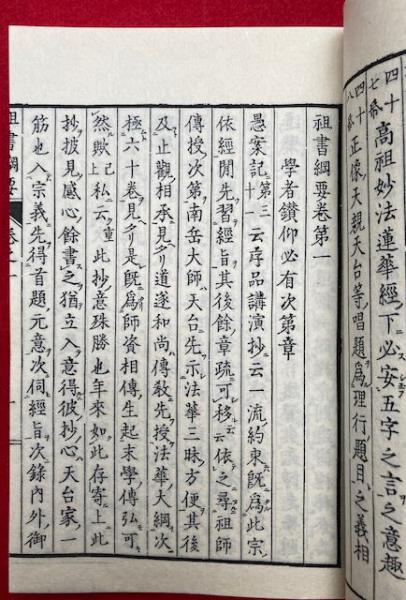 四十七 高祖妙法蓮華經ノ下ニ必安五字之言之意趣
四十八 正像天親天台等唱題爲理行題目之義相
祖書綱要卷第一
學者鑚仰必有次第章
愚案記第三十一云序品講演抄云一流約束既爲此宗
依經開先習經旨其後餘章疏可移云云依之尋祖師
傳授次第南岳大師天台先示法華三昧方便其後
及止觀相承見タリ道邃和尚傳教先授法華大綱次
極六十卷見タリ是既爲師資相傳生起末學傳弘可
然歟已上私云重此抄意殊勝也年來如此存寄上此
抄披見感心餘書之猶立入意得彼抄心天台家一
筋也入宗義先得首題元意次伺經旨次錄內外御
祖書綱要 卷之一